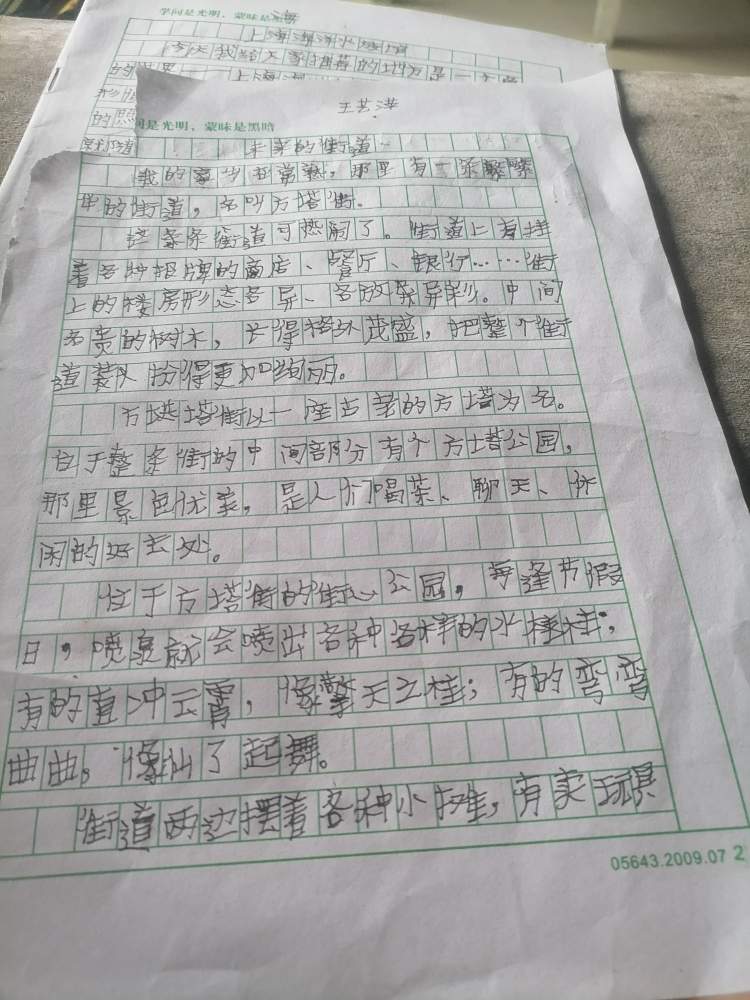 学问是光明，蒙昧是黑暗
海
上海海洋水族馆
今天我给大家推荐的地方是一个
上海海
的照
王艺
问是光明，蒙昧是黑暗
未来的街道
我的家乡在常熟，那里有一条繁
华的街道，名叫方塔街。
这条条街道可热闹了。街道上有挂
着各种招牌的商店、餐厅、银行……街
上的楼房形态各异、各放异彩。中间
名贵的树木，长得格外茂盛，把整个街
道装扮得更加绚丽。
方塔街以一座古老的方塔为名。
位于整条街的中间部分有个方塔公园，
那里景色优美，是人们喝茶、聊天、休
闲的好去处。
位于方塔街的街心公园，每逢节假
日，喷泉就会喷出各种各样的水柱，
有的直冲云霄，像擎天之柱；有的弯弯
曲曲。像仙了起舞。
街道两边摆着各种小摊，有卖玩具
05643.2009.07 2